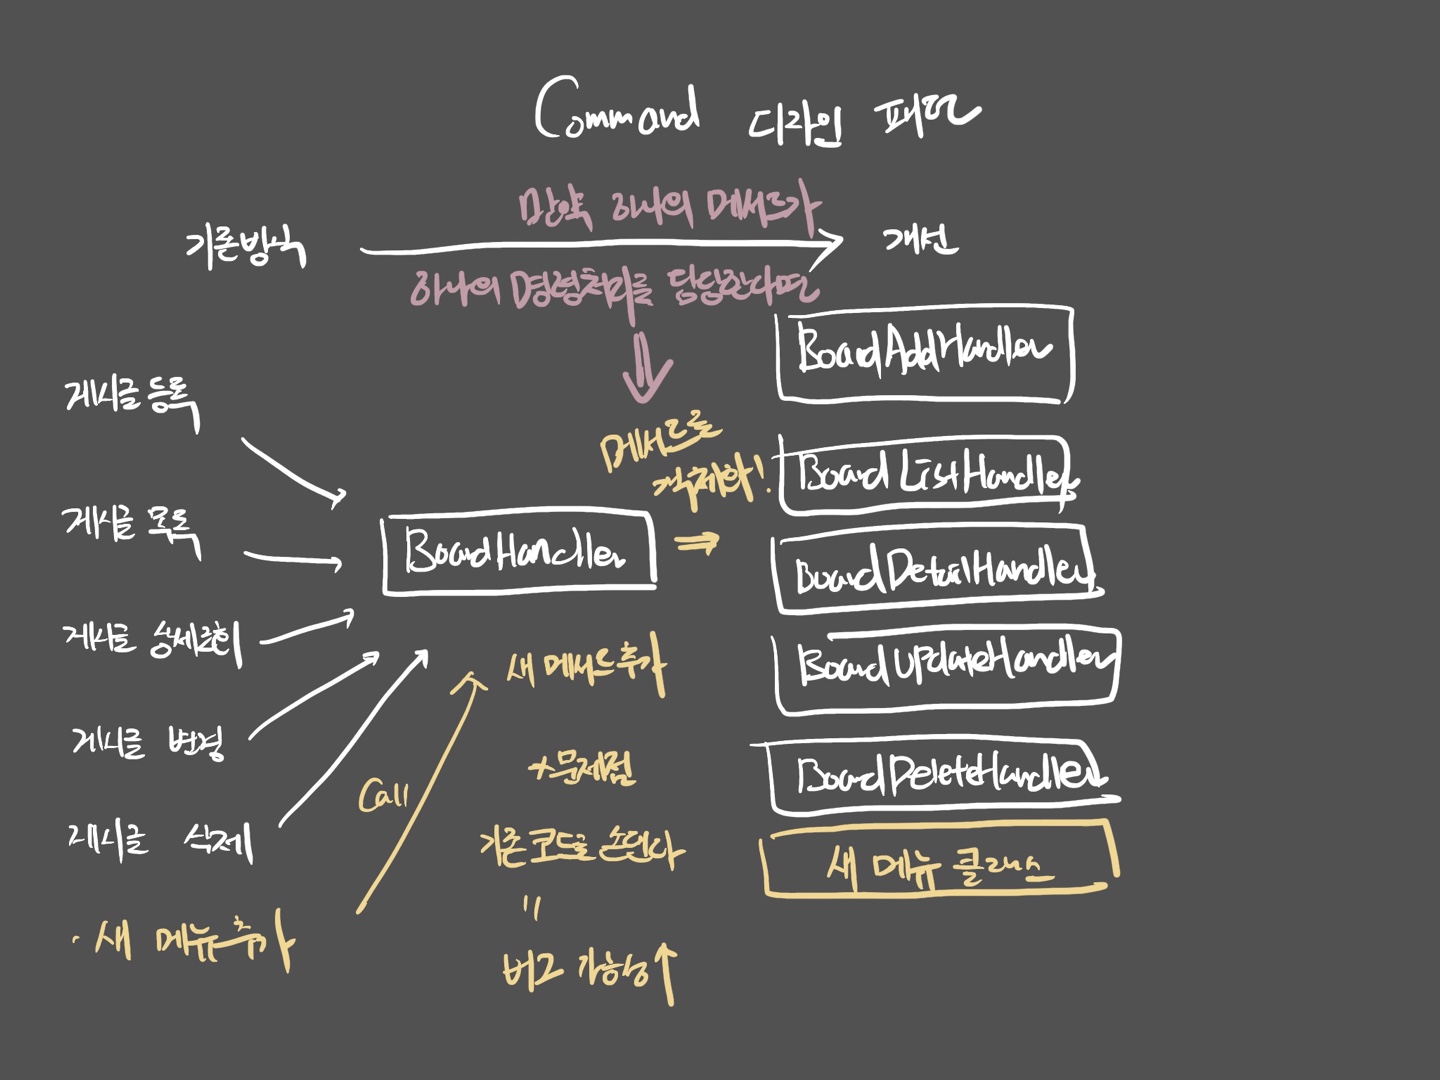 Command 디자인 패턴
기존방식
만약 하나의 메서드가
하나의 명령처리를 담당한다면
개선
게시글 등록
게시글 목록
게시글 상세조회
게시글 변경
게시글 삭제
· 새 메뉴추가
Call
BoardHandler
새 메서드추가
+문제점
기존코드로 손댄다
"
버그 가능성↑
메서드를
객체화!
BoardAddHandler
Board ListHandler
BoardDetailHandler
BoardUpdateHandler
BoardDeleteHandler
새 메뉴 클래스